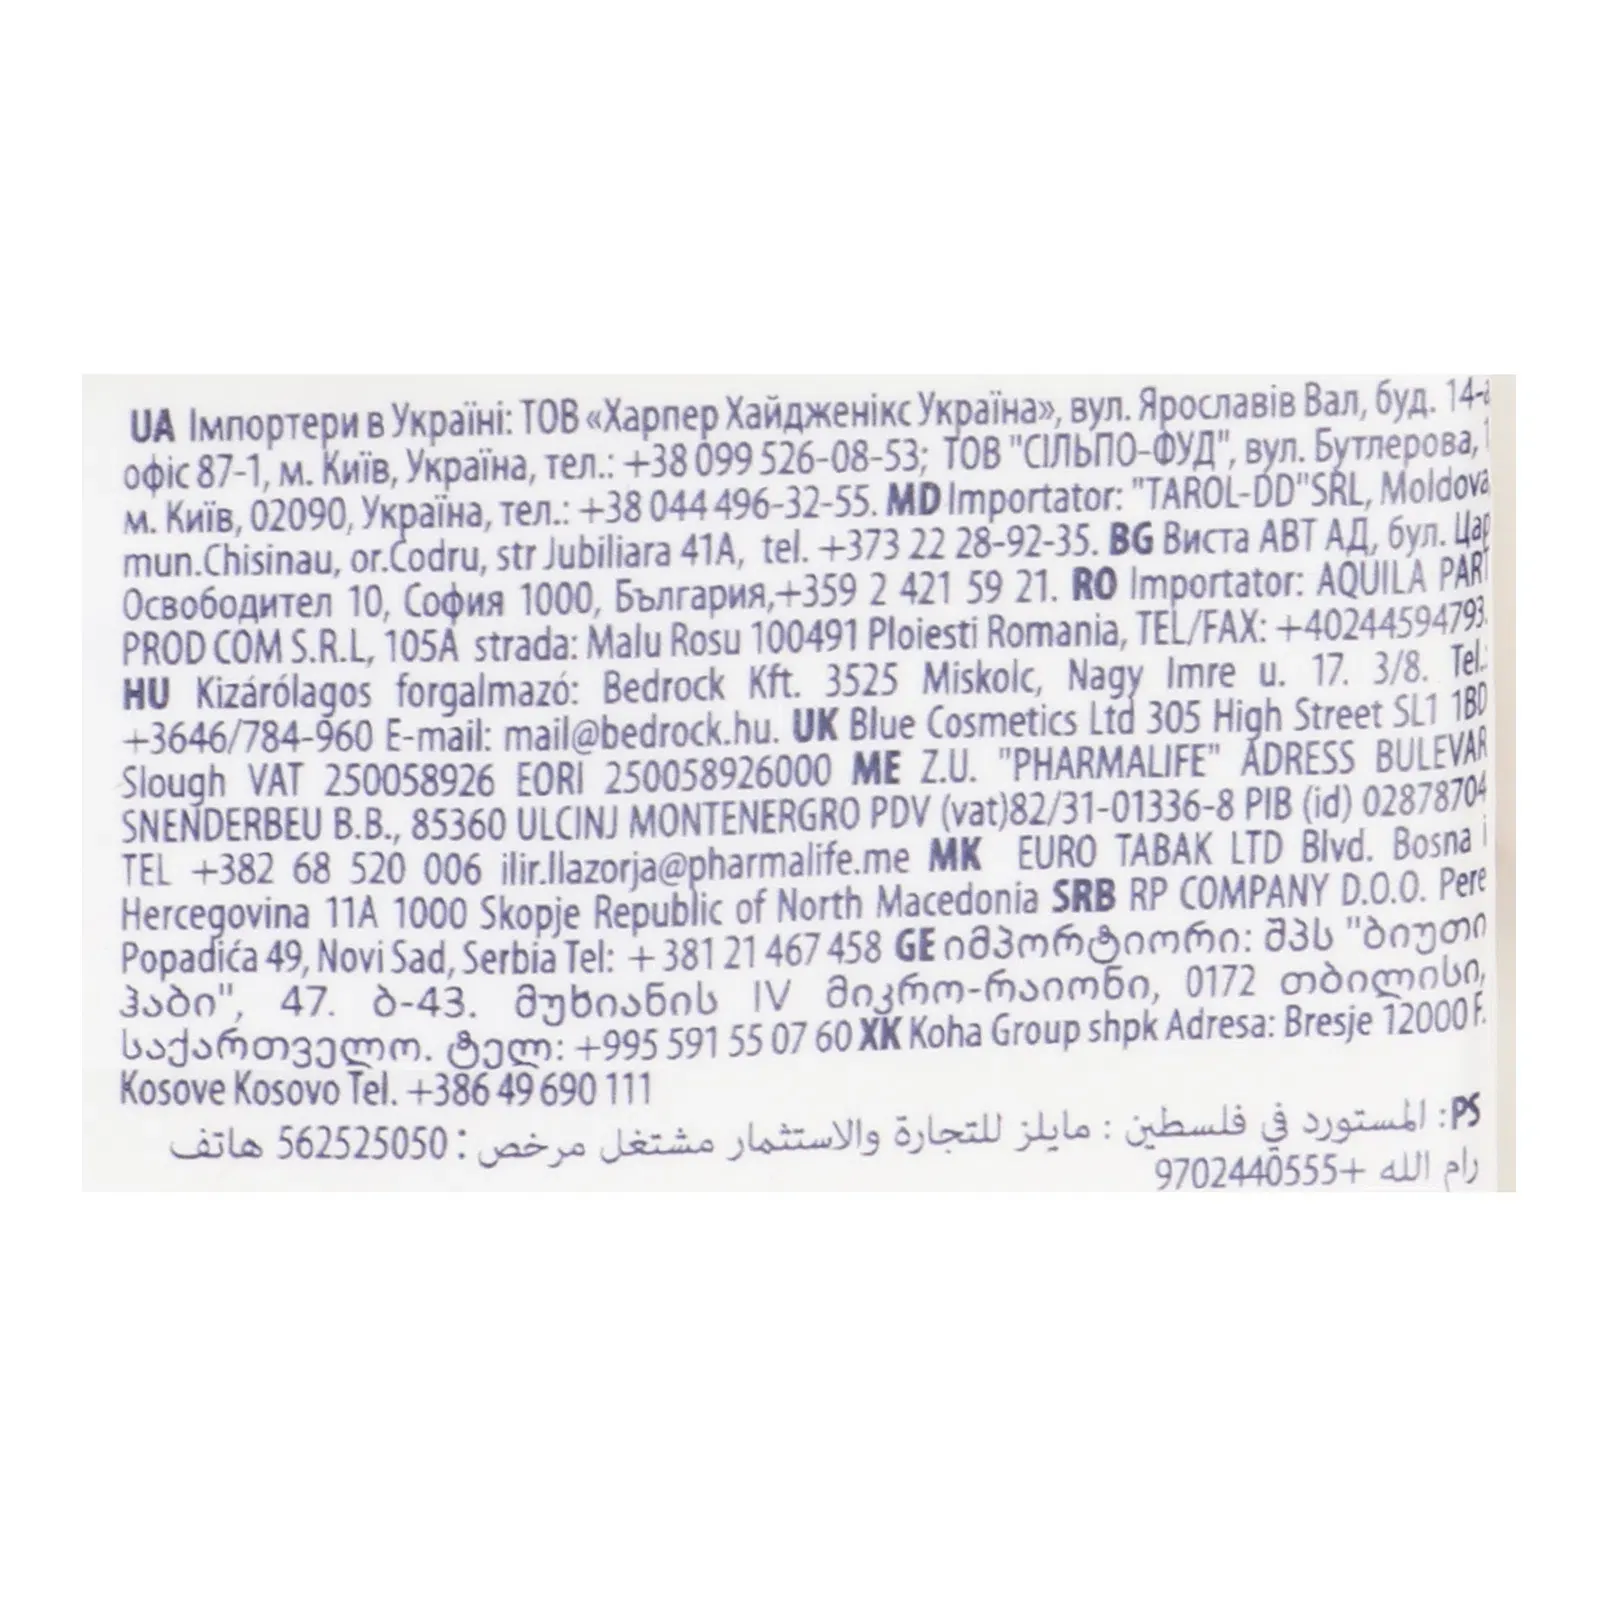 UA Імпортери в Україні: ТОВ «Харпер Хайдженікс Україна», вул. Ярославів Вал, буд. 14-а
офіс 87-1, м. Київ, Україна, тел.: +38 099 526-08-53; ТОВ "СІЛЬПО-ФУД", вул. Бутлерова,
м. Київ, 02090, Україна, тел.: +38 044 496-32-55. MD Importator: "TAROL-DD"SRL, Moldova
mun.Chisinau, or.Codru, str Jubiliara 41A, tel. +373 22 28-92-35. BG Виста АВТ АД, бул. Цар
Освободител 10, София 1000, България,+359 2 421 59 21. RO Importator: AQUILA PART
PROD COM S.R.L, 105A strada: Malu Rosu 100491 Ploiesti Romania, TEL/FAX: +40244594793.
HU Kizárólagos forgalmazó: Bedrock Kft. 3525 Miskolc, Nagy Imre u. 17. 3/8. Tel.:
+3646/784-960 E-mail: mail@bedrock.hu. UK Blue Cosmetics Ltd 305 High Street SL1 1BD
Slough VAT 250058926 EORI 250058926000 ME Z.U. "PHARMALIFE" ADRESS BULEVAR
SNENDERBEU B.B., 85360 ULCINJ MONTENERGRO PDV (vat)82/31-01336-8 PIB (id) 02878704
TEL +382 68 520 006 ilir.llazorja@pharmalife.me MK EURO TABAK LTD Blvd. Bosna i
Hercegovina 11A 1000 Skopje Republic of North Macedonia SRB RP COMPANY D.O.O. Pere
Popadića 49, Novi Sad, Serbia Tel: + 381 21 467 458 GE იმპორტიორი: შპს "ბიუთი
ჰაბი", 47. ბ-43. მუხიანის IV მიკრო-რაიონი, 0172 თბილისი,
საქართველო. ტელ: +995 591 55 07 60 XK Koha Group shpk Adresa: Bresje 12000 F.
Kosove Kosovo Tel. +386 49 690 111
PS: المستورد في فلسطين : مايلز للتجارة والاستثمار مشتغل مرخص : 562525050 هاتف
رام الله +9702440555